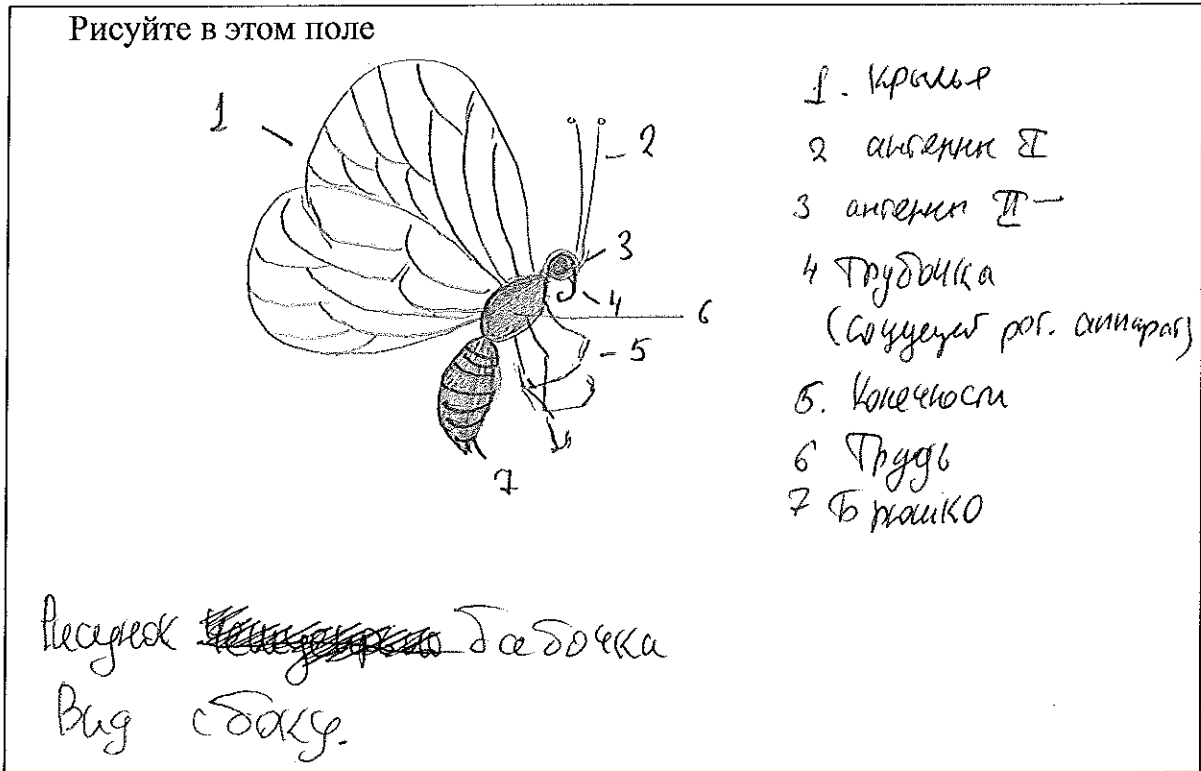 Рисуйте в этом поле
1
2
3
4
6
5
7
1. Крылья
2 антенны I
3 антенны II
4 Трубочка
(сосущей рот. аппарат)
5. Конечности
6 Грудь
7 Брюшко
Рисунок бабочка
Вид сбоку.